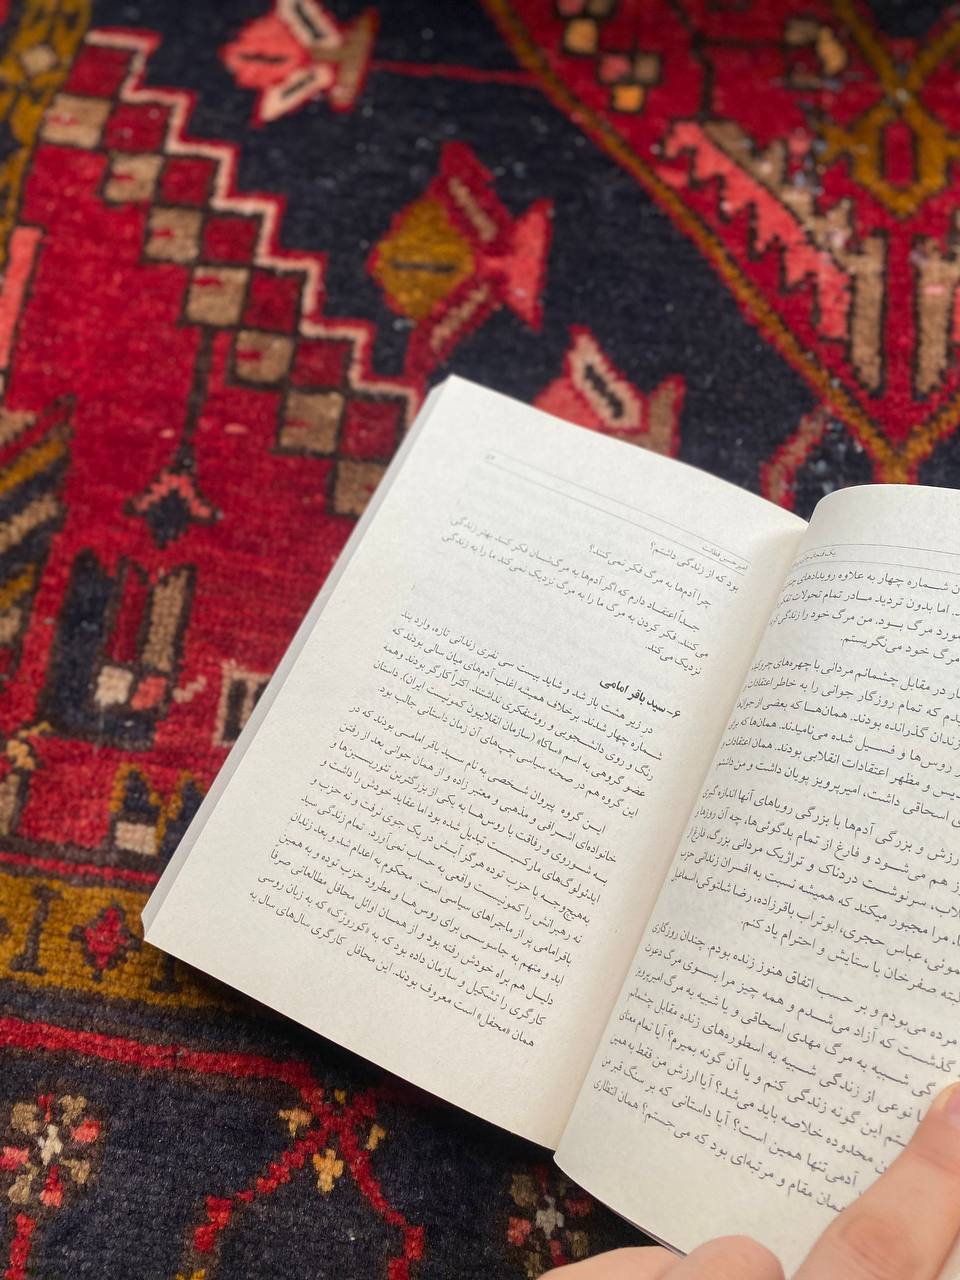 امیرحسین فطانت
۵۳
بود که از زندگی داشتم؟
چرا آدم‌ها به مرگ فکر نمی‌کنند؟
جداً اعتقاد دارم که اگر آدم‌ها به مرگ‌شان فکر کنند بهتر زندگی
می‌کنند. فکر کردن به مرگ ما را به مرگ نزدیک نمی‌کند ما را به زندگی
نزدیک می‌کند.
۶- سید باقر امامی
در زیر هشت باز شد و شاید بیست سی نفری زندانی تازه، وارد بند
شماره چهار شدند. برخلاف همیشه اغلب آدم‌های میان سالی بودند که
رنگ و روی دانشجویی و روشنفکری نداشتند. اکثراً کارگر بودند و همه
عضو گروهی به اسم «ساکا» (سازمان انقلابیون کمونیست ایران). داستان
این گروه هم در صحنه سیاسی چپ‌های آن زمان داستانی جالب بود.
ایـن گروه پیروان شخصی به نام سید باقر امامی بودند که در
خانواده‌ای اشرافی و مذهبی و معتبر زاده و از همان جوانی بعد از رفتن
بـه شـوروی و رفاقت با روس‌هـا به یکی از بزرگترین تئوریسین‌ها و
ایدئولوگ‌های مارکسیست تبدیل شده بود اما عقاید خودش را داشت و
به‌هیچ‌وجـه با حزب توده هرگز آبش در یک جوی نرفت و نه حزب و
نه رهبرانش را کمونیست واقعی به حساب نمی‌آورد. تمام زندگی سید
باقر امامی پر از ماجراهای سیاسی است. محکوم به اعدام شد و بعد زندان
ابد و متهم به جاسوسی برای روس‌ها و مطرود حزب توده و به همین
دلیـل هم راه خودش رفته بود و از همـان اوائل محافل مطالعاتی صرفاً
کارگری را تشکیل و سازمان داده بود که به «کوروژکی» که به زبان روسی
همان «محفل» است معروف بودند. این محافل کارگری سال‌های سال به
ن شـماره چهار به علاوه رویدادهای
اما بدون تردید مـادر تمام تحولات
مورد مرگ بـود. من مرگ خود را زندگی
مرگ خود می‌نگریستم.
در مقابل چشمانم مردانی با چهره‌های
دیدم که تمام روزگار جوانی را به خاطر اعتقادات
زندان گذرانده بودند. همان‌هـا که بعضی از
روس‌ها و فسیل شده می‌نامیدند. همان‌ها که برای
و مظهر اعتقادات انقلابی بودند. همان اعتقادات
اسحاقی داشت، امیرپرویز پویان داشت و من داشتم
ارزش و بزرگی آدم‌ها با بزرگی رویاهای آنها اندازه‌گیری
هم می‌شـود و فارغ از تمام بدگوئی‌ها، چه آن روزها و
سرنوشت دردناک و تراژیک مردانی بزرگ، فارغ از
مرا مجبور میکند که همیشه نسبت به افسران زندانی حزب
عموئی، عباس حجری، ابوتراب باقرزاده، رضا شلتوکی، اسماعیل
البته صفر خان با ستایش و احترام یاد کنم.
مرده می‌بودم و بر حسب اتفاق هنوز زنده بودم. چندان روزگاری
گذشـت که آزاد می‌شـدم و همه چیز مرا بسوی مرگ دعوت
گی شـبیه به مرگ مهدی اسحاقی و یا شبیه به مرگ امیرپرویز
یا نوعی از زندگی شبیه به اسطوره‌های زنده مقابل چشمانم
این گونه زندگی کنم و یا آن گونه بمیرم؟ آیا تمام معنای
محدوده خلاصه باید می‌شد؟ آیا ارزش من فقط به همین
آدمی تنها همین است؟ آیا داستانی که بر سنگ قبر من
همان مقام و مرتبه‌ای بود که می‌جستم؟ همان انتظاری